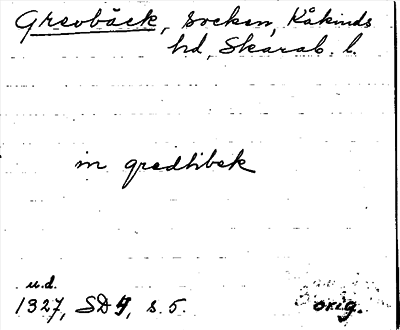 Grevbäck, socken, Kåkinds
hd, Skarab. l.
in gredhbek
u.d.
1327, SD 4, s. 5.
orig.